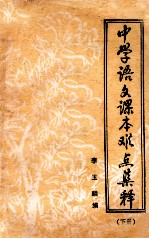 中学语文课本难点集释
(下册)
李玉麟编